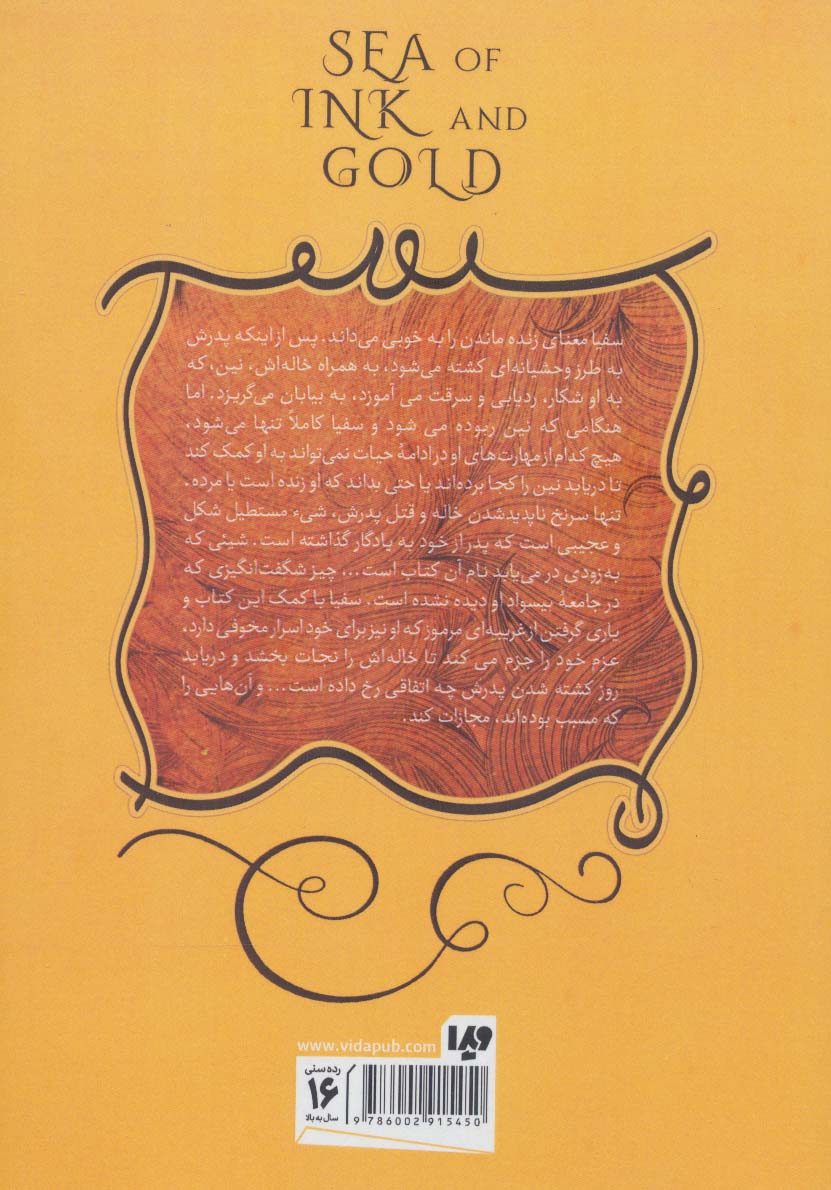 SEA OF
INK AND
GOLD
سفیا معنای زنده ماندن را به خوبی می‌داند. پس از اینکه پدرش
به طرز وحشیانه‌ای کشته می‌شود، به همراه خاله‌اش، نین، که
به او شکار، ردیابی و سرقت می آموزد، به بیابان می‌گریزد. اما
هنگامی که نین ربوده می شود و سفیا کاملاً تنها می‌شود،
هیچ کدام از مهارت‌های او در ادامهٔ حیات نمی‌تواند به او کمک کند
تا دریابد نین را کجا برده‌اند یا حتی بداند که او زنده است یا مرده.
تنها سرنخ ناپدیدشدن خاله و قتل پدرش، شیء مستطیل شکل
و عجیبی است که پدر از خود به یادگار گذاشته است. شیئی که
به‌زودی در می‌یابد نام آن کتاب است... چیز شگفت‌انگیزی که
در جامعهٔ بیسواد او دیده نشده است. سفیا با کمک این کتاب و
یاری گرفتن از غریبه‌ای مرموز که او نیز برای خود اسرار مخوفی دارد،
عزم خود را جزم می کند تا خاله‌اش را نجات بخشد و دریابد
روز کشته شدن پدرش چه اتفاقی رخ داده است... و آن‌هایی را
که مسبب بوده‌اند، مجازات کند.
ویدا
www.vidapub.com
رده سنی
۱۶
سال به بالا
9 786002 915450